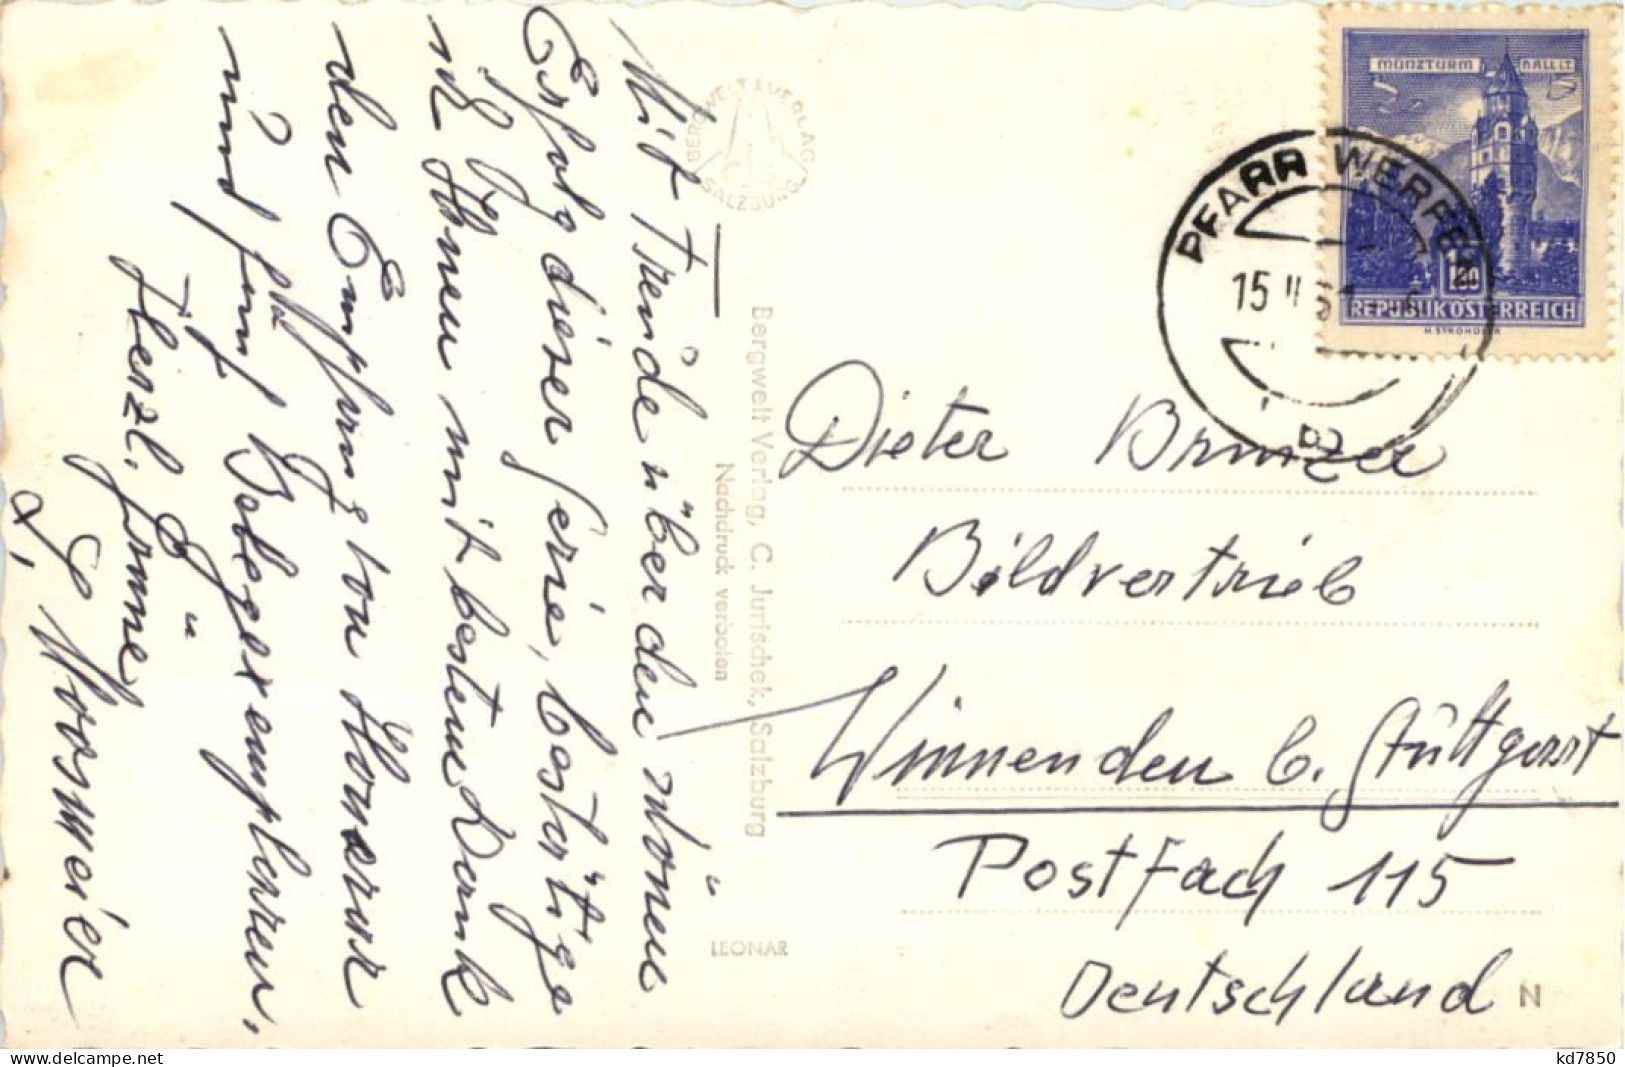 Mit Freude über den schönen
Erfolg dieser Serie, bestätige
ich Ihnen mit bestem Dank
den Empfang von Honorar
und fünf Belegexemplaren.
Herzl. Grüße
L. Moosmeier
BERGWELT VERLAG
SALZBURG
Bergwelt Verlag, C. Jurischek, Salzburg
Nachdruck verboten
LEONAR
MÜNZTURM HALL I.T.
1.20
REPUBLIK ÖSTERREICH
PFARR WERFEN
15 II
b
Dieter
Bildvertrieb
Winnenden b. Stuttgart
Postfach 115
Deutschland
N
kd7850